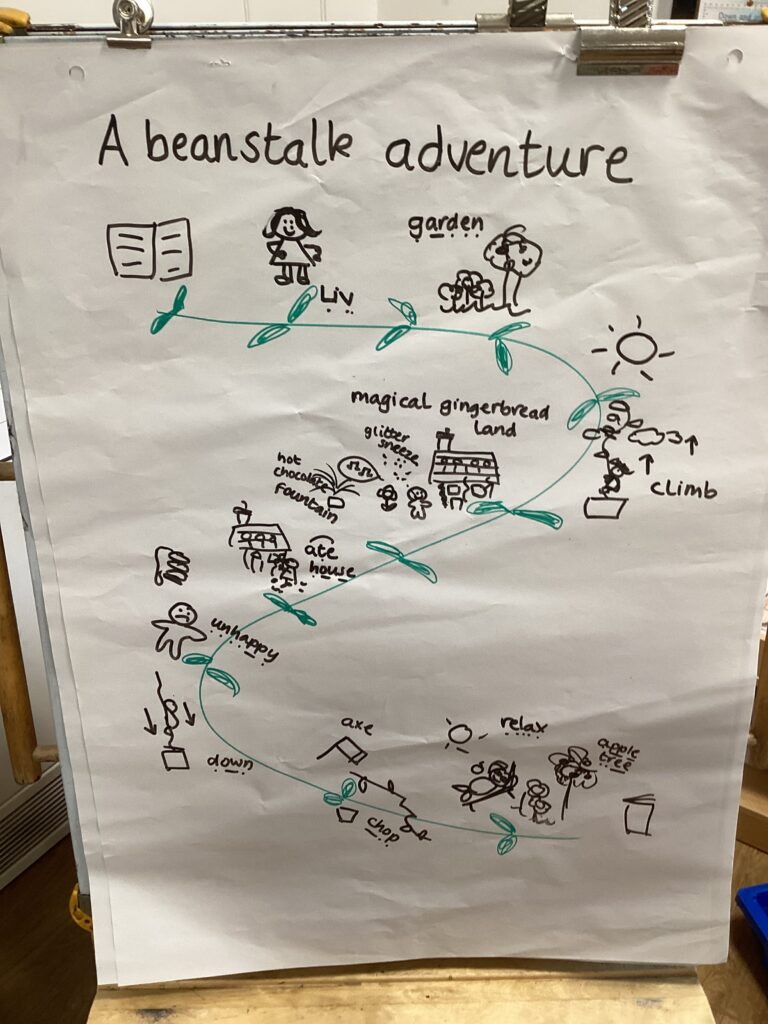 A beanstalk adventure
garden
Liv
magical gingerbread
land
glitter
sneeze
hot
chocolate
fountain
climb
ate
house
unhappy
down
axe
chop
relax
apple
tree